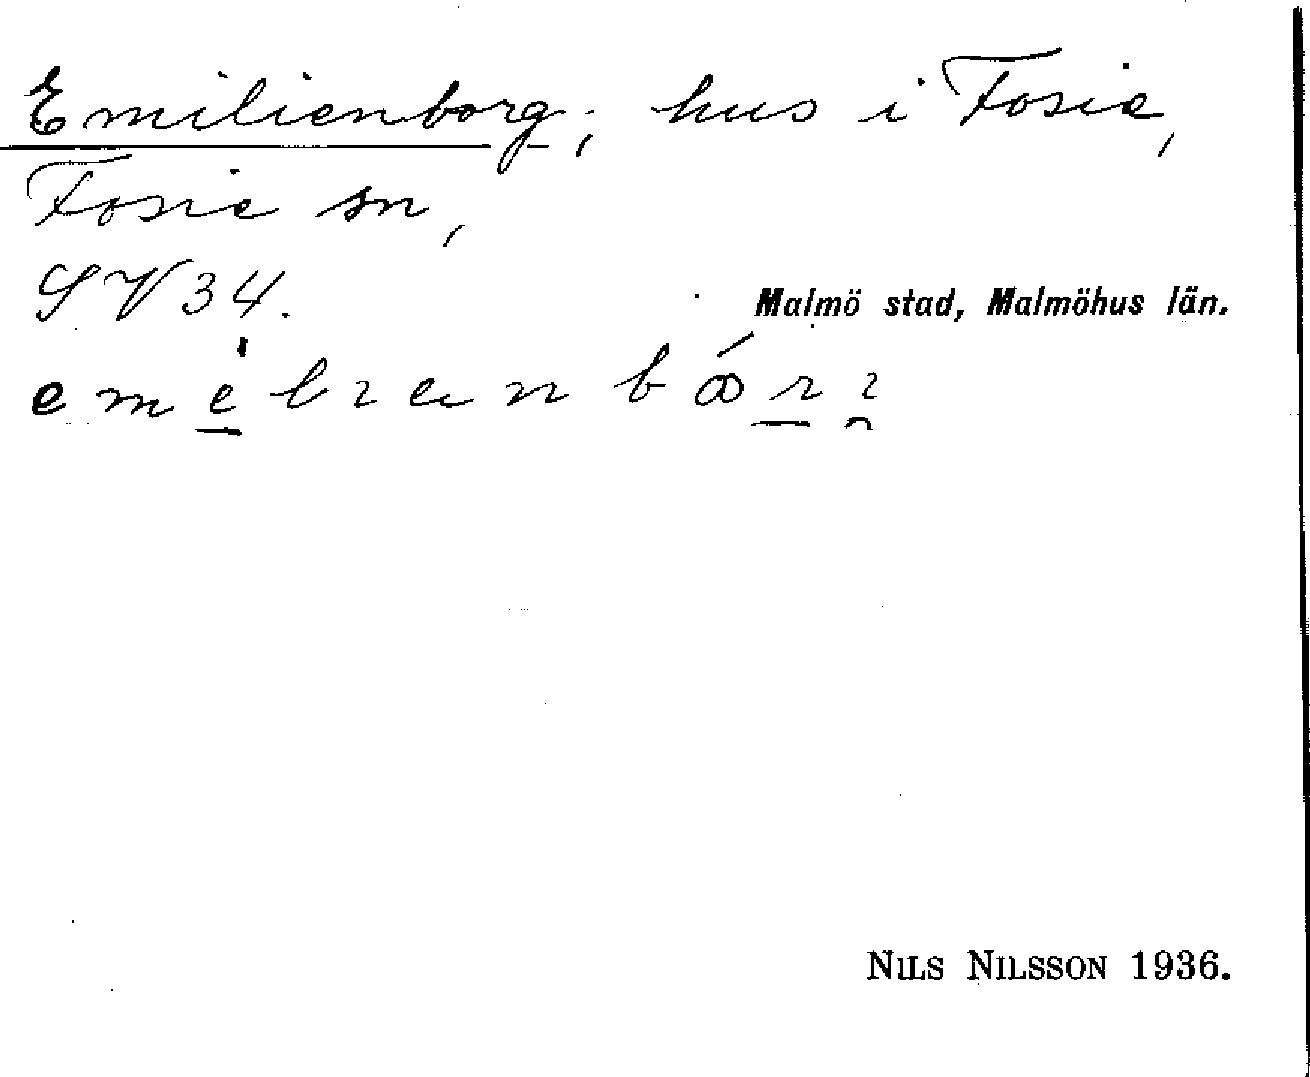 Emilienborg; hus i Fosie,
Fosie sn,
SV 34.
Malmö stad, Malmöhus län.
NILS NILSSON 1936.